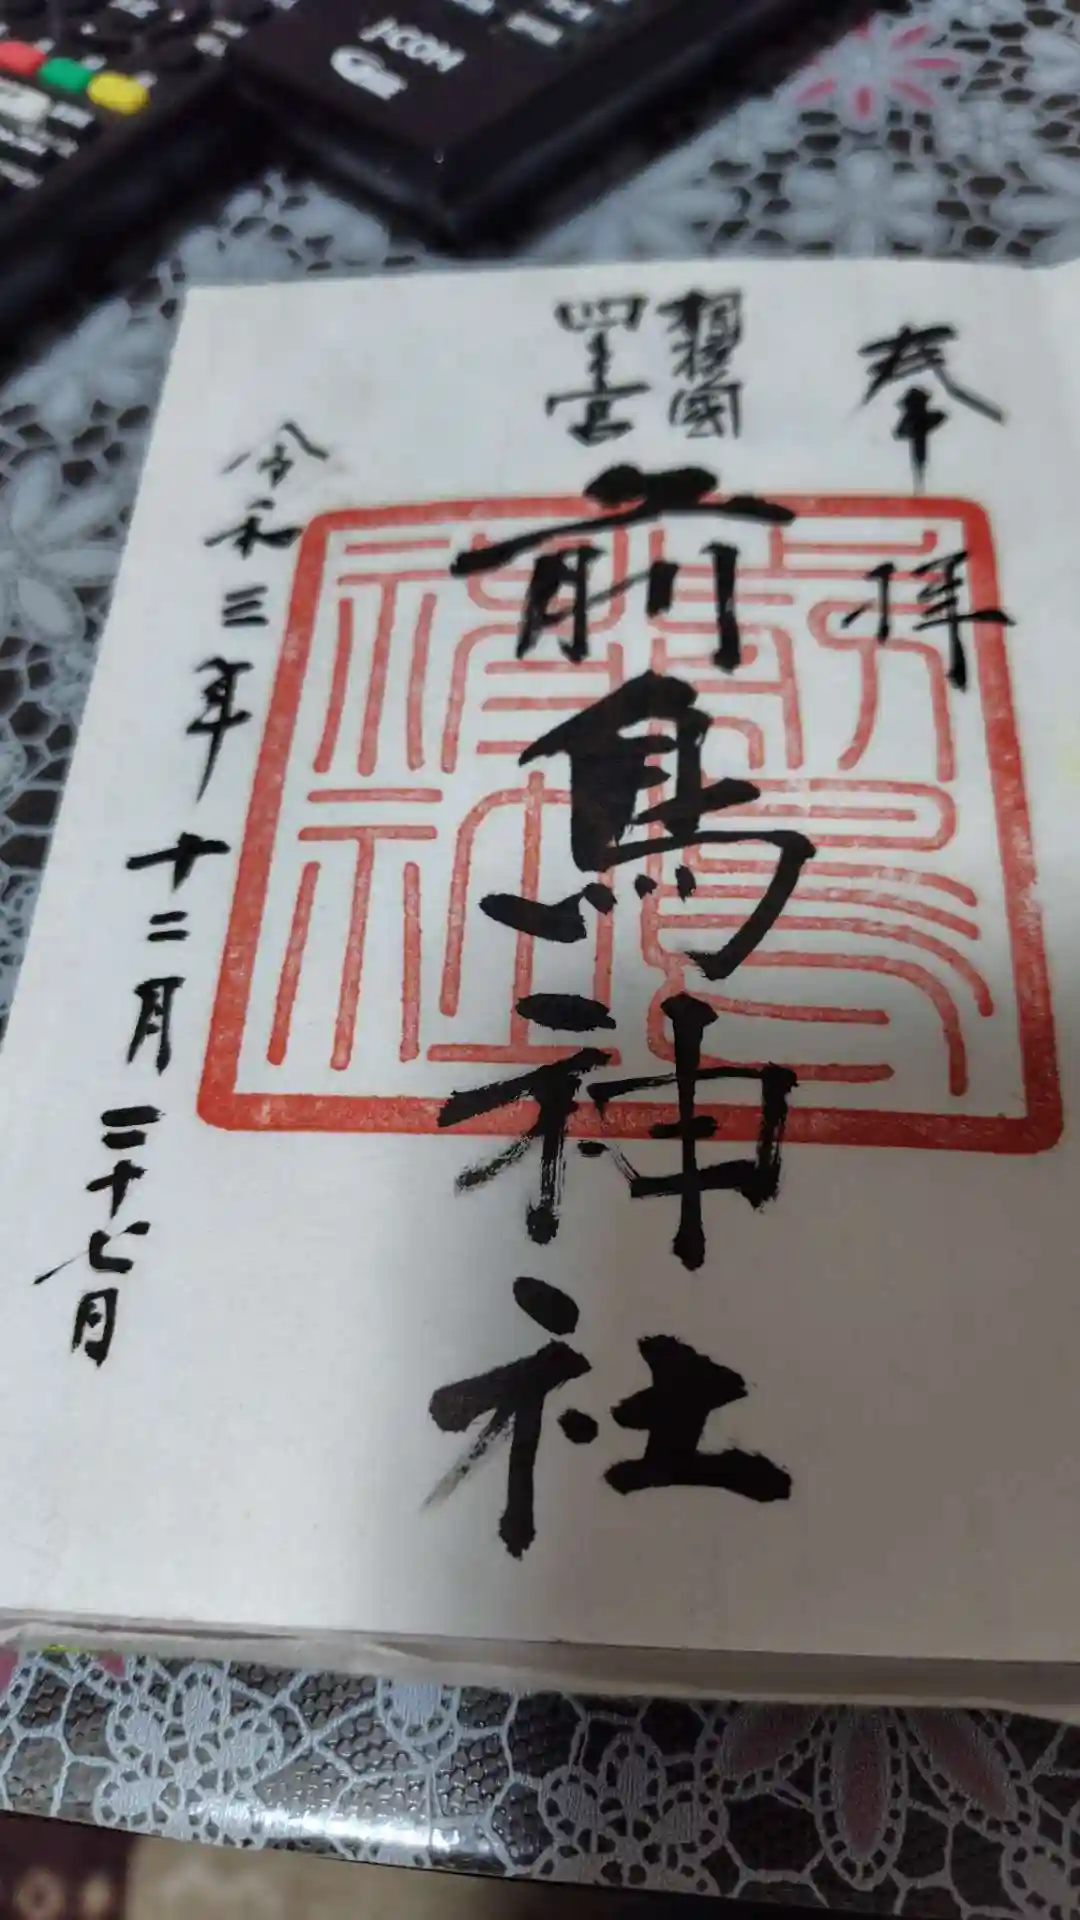 奉拝
相模國
四之宮
前鳥神社
令和三年十二月二十七日
前鳥神社
J:COM